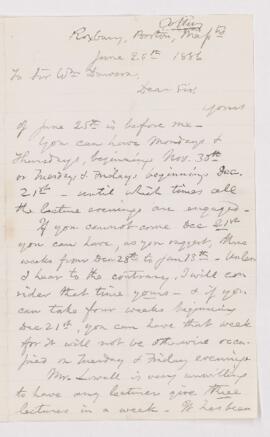 Roxbury, Boston, Mass
June 26th 1886
To Sir Wm Dawson
Dear Sir
Yours
of June 25th is before me -
You can have Mondays &
Thursdays, beginning Nov. 30th
or Tuesdays & Fridays beginning Dec.
21st - until which times all
the lecture evenings are engaged -
If you cannot come Dec 21st
you can have, as you suggest, three
weeks from Dec 28th to Jan 13th - Unless
I hear to the contrary, I will con
sider that time, yours - & if you
can take four weeks beginning
Dec 21st, you can have that week
for it will not be otherwise occu-
pied on Tuesday & Friday evenings
Mr. Lowell is very unwilling
to have any lecturer give three
lectures in a week - It has been